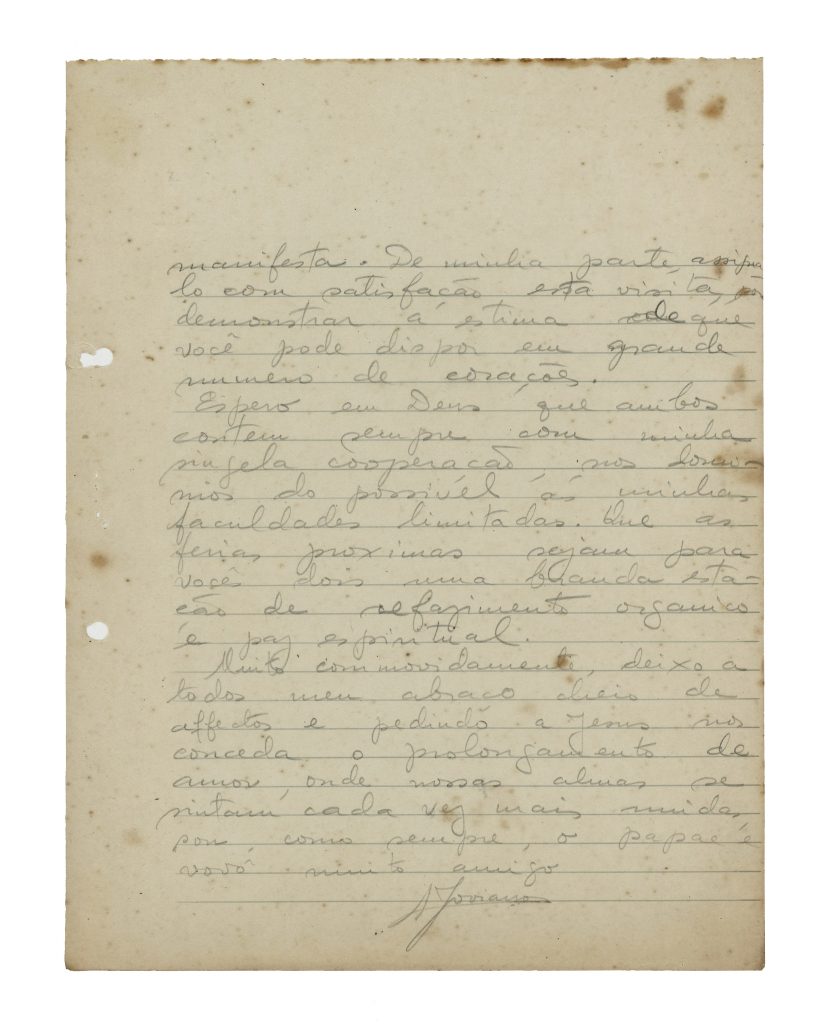 manifesta. De minha parte, assigna
lo com satisfação esta visita, por
demonstrar á estima de que
você pode dispor em grande
numero de corações.
Espero em Deus que ambos
contem sempre com minha
singela cooperação, nos domi-
nios do possivél ás minhas
faculdades limitadas. Que as
ferias proximas sejam para
vocês dois uma branda esta-
ção de refazimento organico
e paz espiritual.
Muito commovidamente, deixo a
todos meu abraço cheio de
affectos e pedindo a Jesus nos
conceda o prolongamento de
amor, onde nossas almas se
sintam cada vez mais unidas,
sou, como sempre, o papae e
vovô muito amigo
A Joviano